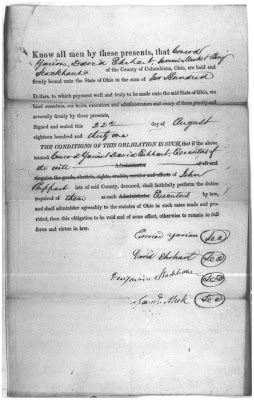 Know all men by these presents, that Conrod
Yarian, David Ehrhart Samuel Meek & Benj
Stackhouse of the County of Columbiana, Ohio, are held and
firmly bound unto the State of Ohio in the sum of Six Hundred
Dollars, to which payment well and truly to be made unto the said State of Ohio, we
bind ourselves, our heirs, executors and administrators and every of them jointly and
severally firmly by these presents,
Signed and sealed this 22nd day of August
eighteen hundred and thirty one
THE CONDITIONS OF THIS OBLIGATION IS SUCH, that if the above
named Conrod Yarian & David Ehrhart, Executors of
the will Administrator of all and
singular the goods, chattels, rights, credits, monies and effects of John
late of said County, deceased, shall faithfully perform the duties
required of them as such Administrator Executors by law,
and shall administer agreeably to the statutes of Ohio in such cases made and pro-
vided, then this obligation to be void and of none effect, otherwise to remain in full
force and virtue in law.
Conrad Yarian Seal
David Ehrhart Seal
Benjamin Stackhouse Seal
Saml. Meek Seal